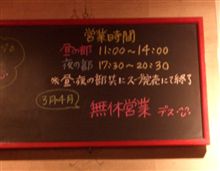 営業時間
昼の部 11:00〜14:00
夜の部 17:30〜20:30
※昼・夜の部共にスープ完売にて終了
3月4月
無休営業デス